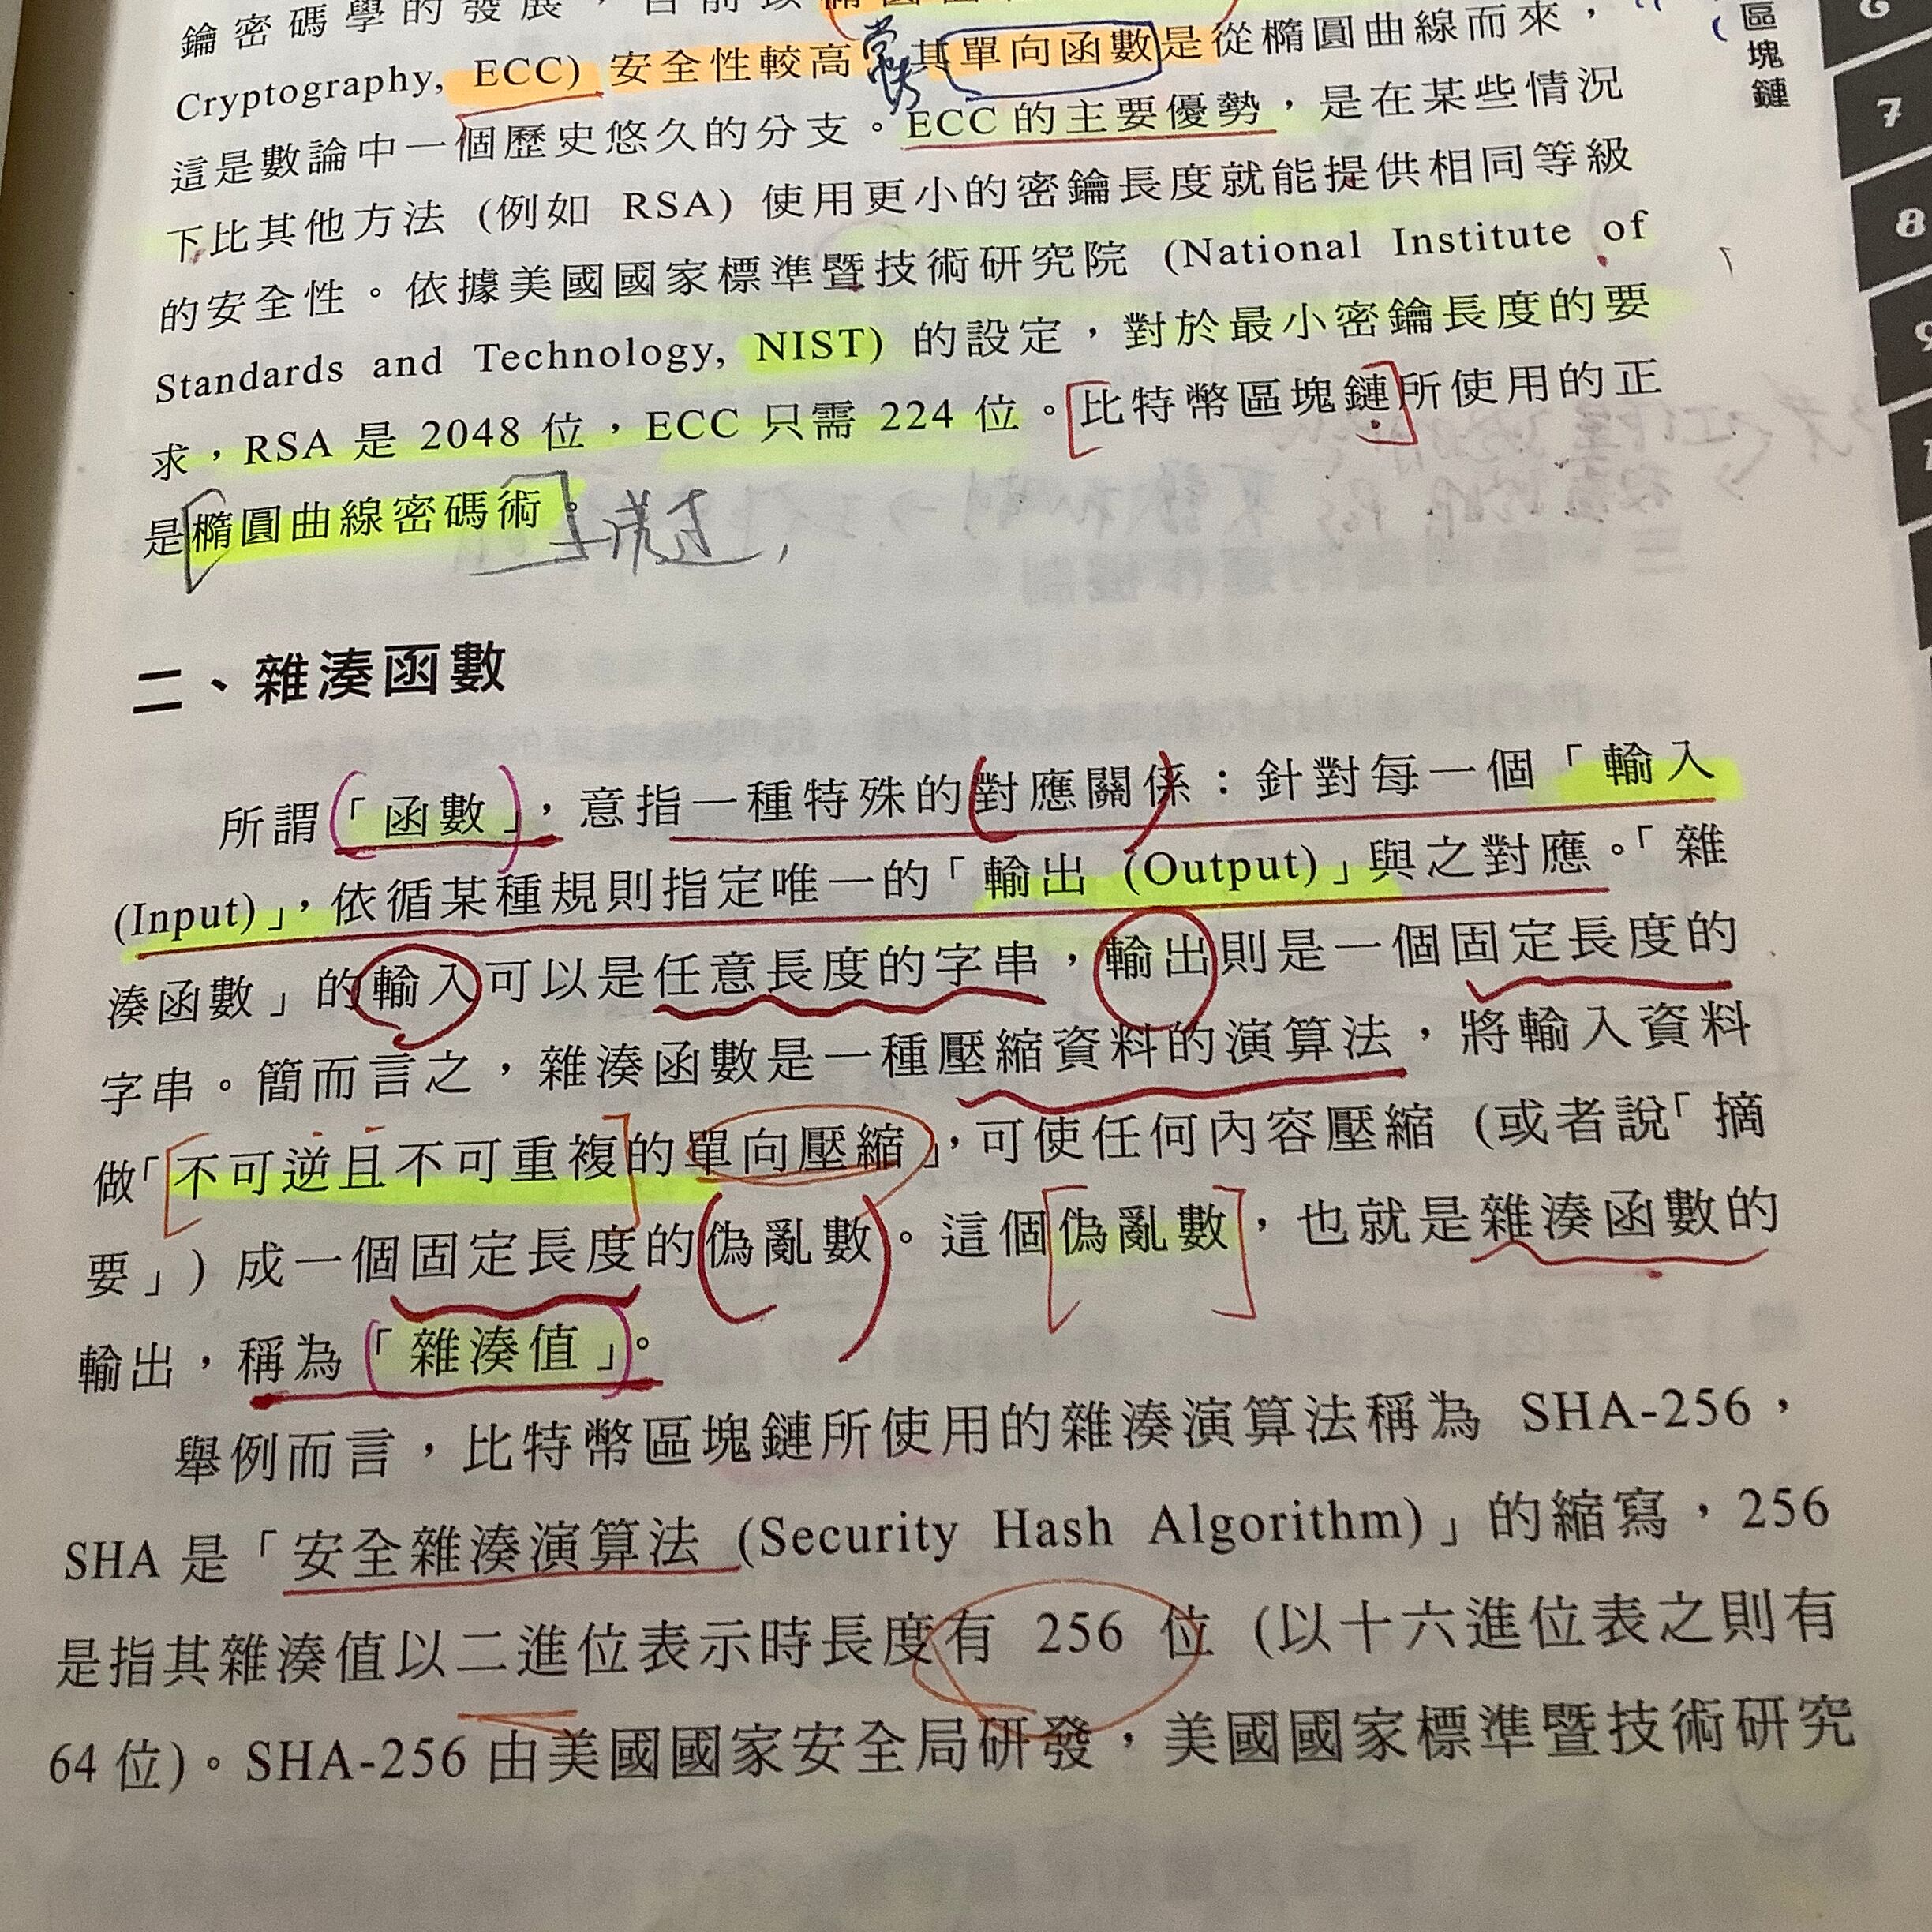 鑰密碼學的發展，目前以橢圓
Cryptography, ECC) 安全性較高，其單向函數是從橢圓曲線而來，
這是數論中一個歷史悠久的分支。ECC 的主要優勢，是在某些情況
下比其他方法 (例如 RSA) 使用更小的密鑰長度就能提供相同等級
的安全性。依據美國國家標準暨技術研究院 (National Institute of
Standards and Technology, NIST) 的設定，對於最小密鑰長度的要
求，RSA 是 2048 位，ECC 只需 224 位。比特幣區塊鏈所使用的正
是橢圓曲線密碼術。
二、雜湊函數
所謂「函數」，意指一種特殊的對應關係：針對每一個「輸入
(Input)」，依循某種規則指定唯一的「輸出 (Output)」與之對應。「雜
湊函數」的輸入可以是任意長度的字串，輸出則是一個固定長度的
字串。簡而言之，雜湊函數是一種壓縮資料的演算法，將輸入資料
做「不可逆且不可重複的單向壓縮」，可使任何內容壓縮 (或者說「摘
要」) 成一個固定長度的偽亂數。這個偽亂數，也就是雜湊函數的
輸出，稱為「雜湊值」。
舉例而言，比特幣區塊鏈所使用的雜湊演算法稱為 SHA-256，
SHA 是「安全雜湊演算法 (Security Hash Algorithm)」的縮寫，256
是指其雜湊值以二進位表示時長度有 256 位 (以十六進位表之則有
64 位)。SHA-256 由美國國家安全局研發，美國國家標準暨技術研究
區塊鏈
6
7
8
9